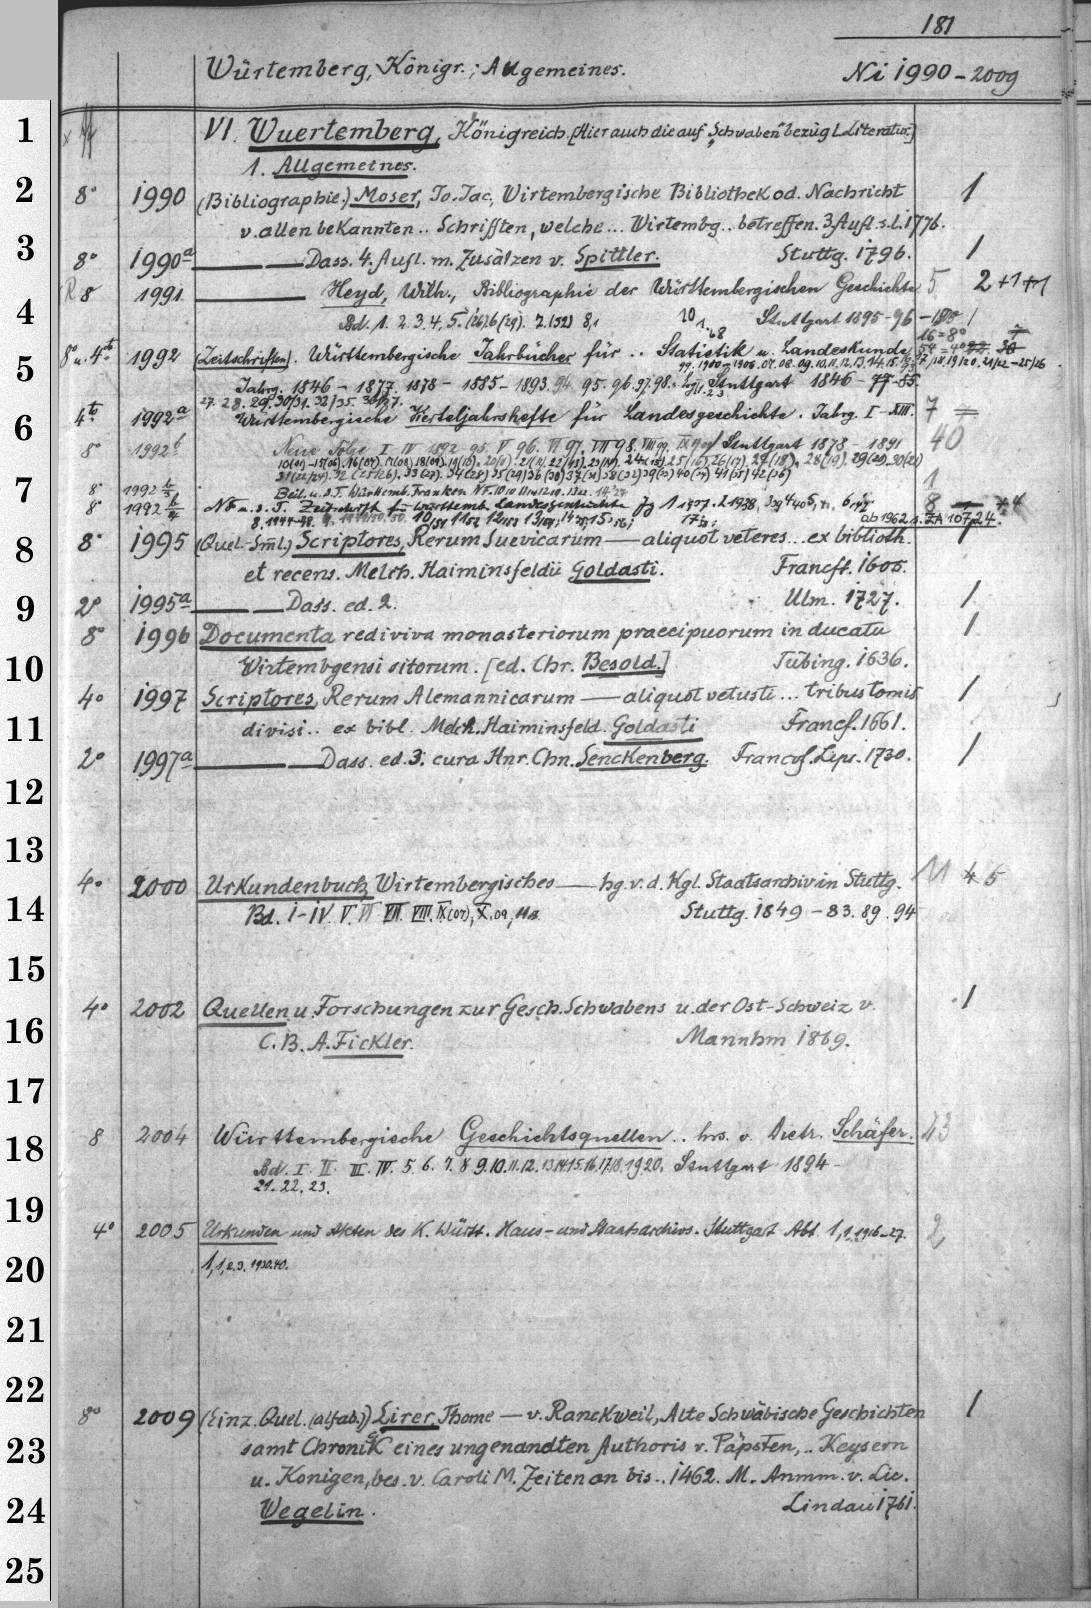 181
Würtemberg, Königr.; Allgemeines. Ni 1990-2009
1
VI. Wuertemberg, Königreich. [Hier auch die auf „Schwaben" bezügl. Literatur.]
1. Allgemeines.
2
8° 1990 (Bibliographie.) Moser, Jo. Jac, Wirtembergische Bibliothek od. Nachricht 1
v. allen bekannten .. Schrifften, welche ... Wirtembg .. betreffen. 3. Aufl. s.l. 1776.
3
8° 1990a Dass. 4. Aufl. m. Zusätzen v. Spittler. Stuttg. 1796. 1
8 1991 Heyd, Wilh., Bibliographie der Württembergischen Geschichte 5 2+1+1
4
Bd. 1. 2. 3. 4. 5. (26). 6 (29). 7. (32) 8,1 Stuttgart 1895-96
16=8°
5
8° u. 4to 1992 (Zeitschriften). Württembergische Jahrbücher für .. Statistik u. Landeskunde
Jahrg. 1846 - 1877. 1878 - 1885 - 1893. 94. 95. 96. 97. 98. Stuttgart 1846 - 77-85.
27. 28. 29. 30/31. 32/35. 36/37.
6
4to 1992a Württembergische Vierteljahrshefte für Landesgeschichte. Jahrg. I-XIII. 7
8° 1992b Neue Folge I - IV 1892. 95. V 96. VI 97. VII 98. Stuttgart 1878 - 1891 40
7
8° 1992 Beil. u. d. T. Württemb. Franken N.F. 1
8° 1992 NF u. d. T. Zeitschrift für württemb. Landesgeschichte Jg 1 1937. 2 1938, 8
ab 1962 s. ZA 10724.
8
8° 1995 (Quel.-Sml.) Scriptores, Rerum Suevicarum — aliquot veteres ... ex biblioth. 1
et recens. Melch. Haiminsfeldii Goldasti. Francft. 1605.
9
2° 1995a Dass. ed. 2. Ulm. 1727. 1
8° 1996 Documenta rediviva monasteriorum praecipuorum in ducatu 1
10
Wirtembgensi sitorum. [ed. Chr. Besold.] Tübing. 1636.
4° 1997 Scriptores, Rerum Alemannicarum — aliquot vetusti ... tribus tomis 1
11
divisi .. ex bibl. Melch. Haiminsfeld. Goldasti Francf. 1661.
2° 1997a Dass. ed. 3. cura Hnr. Chn. Senckenberg. Francof. Lips. 1730. 1
12
13
4° 2000 Urkundenbuch, Wirtembergisches — hg. v. d. Kgl. Staatsarchiv in Stuttg. 11 4 5
14
Bd. I-IV. V. VI. VII. VIII. IX (07), X, 09, 11. Stuttg. 1849 - 83. 89. 94
15
4° 2002 Quellen u. Forschungen zur Gesch. Schwabens u. der Ost-Schweiz v. 1
16
C. B. A. Fickler. Mannhm 1869.
17
18
8 2004 Württembergische Geschichtsquellen .. hrs. v. Dietr. Schäfer. 23
Bd. I. II. III. IV. 5. 6. 7. 8 9. 10. 11. 12. 13 14. 15. 16. 17/18. 19. 20. Stuttgart 1894 -
21. 22. 23.
19
4° 2005 Urkunden und Akten des K. Württ. Haus- und Staatsarchivs. Stuttgart Abt 1,1. 1916-27. 2
20
1,1,2.3. 1930.40.
21
22
8° 2009 (Einz. Quel. (alfab.)) Lirer, Thome — v. Ranckweil, Alte Schwäbische Geschichten 1
23
samt Chronik eines ungenandten Authoris v. Päpsten, .. Keysern
u. Konigen, bes. v. Caroli M. Zeiten an bis .. 1462. M. Anmm. v. Lic.
24
Wegelin. Lindau 1761.
25